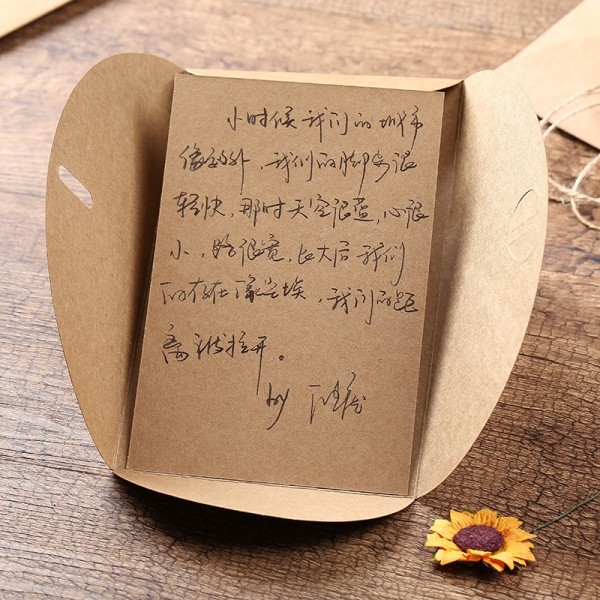 小时候我们的城市
像郊外，我们的脚步很
轻快，那时天空很蓝，心很
小，路很宽，长大后我们
的存在像尘埃，我们的距
离被拉开。